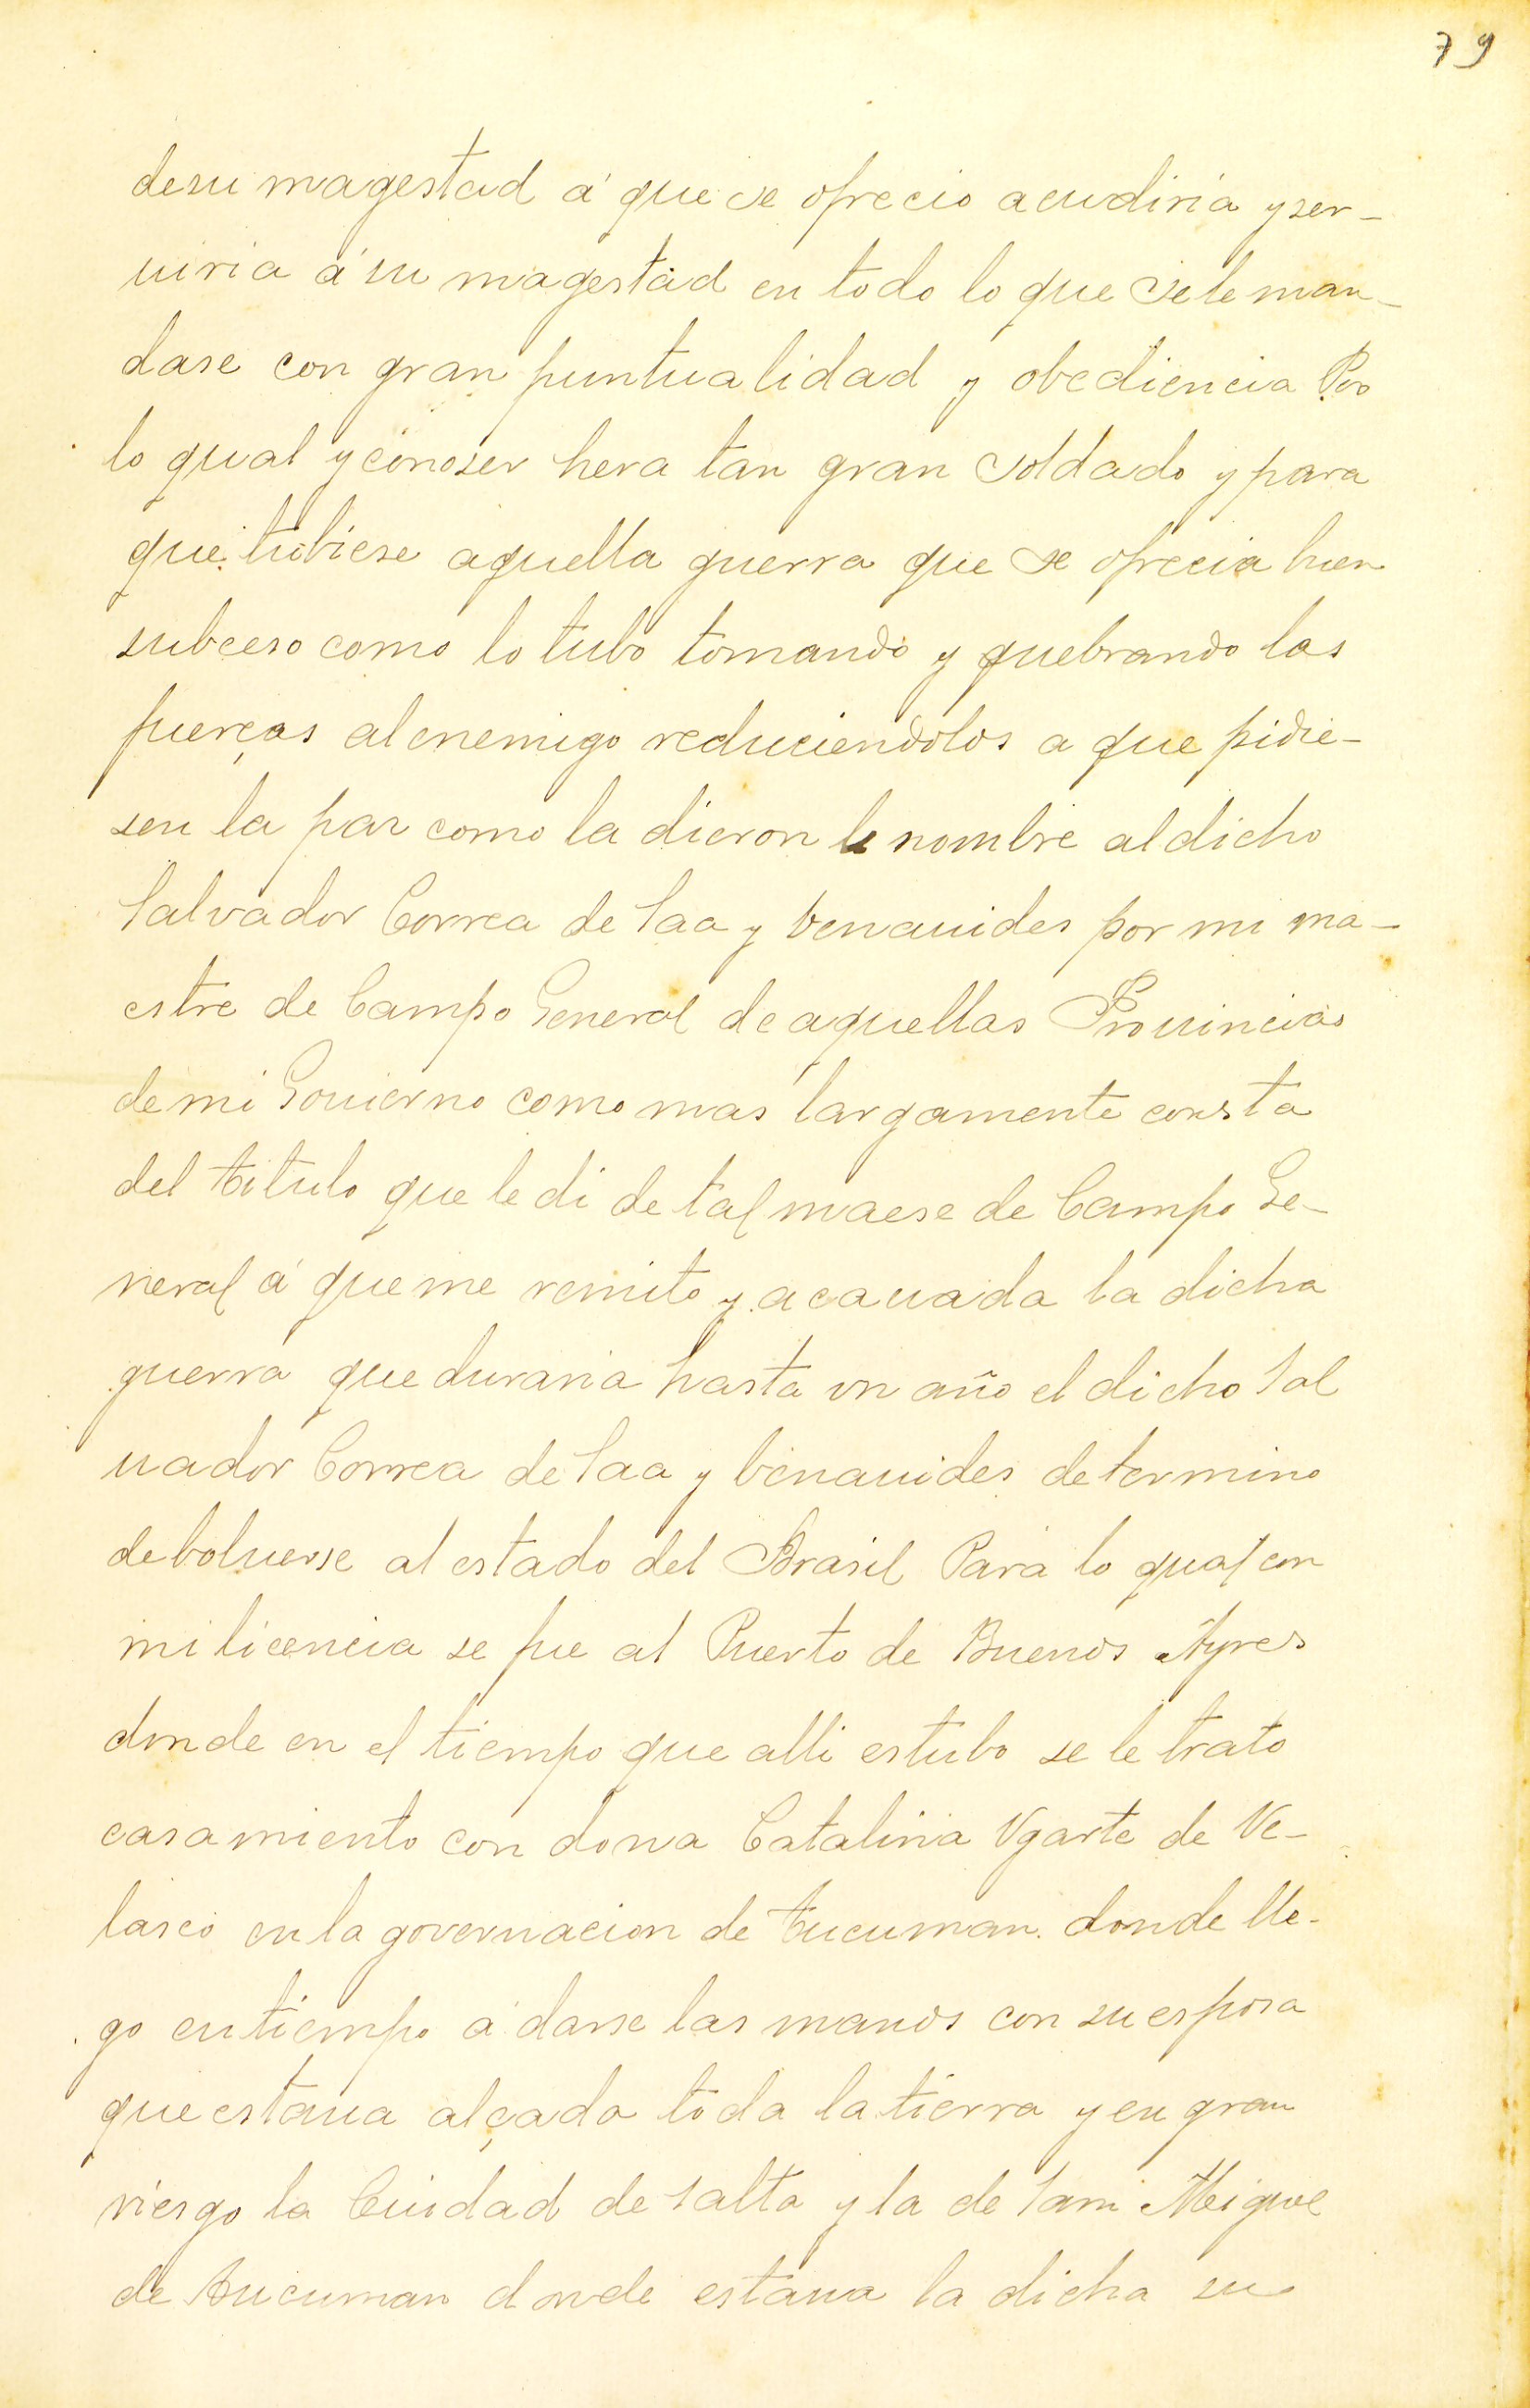 79
desu magestad á que se ofrecio acudiria y ser-
uiria á su magestad en todo lo que se le man-
dase con gran puntualidad y obediencia Por
lo qual y conoser hera tan gran soldado y para
que tubiese aquella guerra que se ofrecia buen
subceso como lo tubo tomando y quebrando las
fuerças al enemigo reduciendolos a que pidie-
sen la paz como la dieron le nombre al dicho
Salvador Correa de Saa y benauides por mi ma-
estre de Campo General de aquellas Prouincias
de mi Gouierno como mas largamente consta
del titulo que le di de tal maese de Campo Ge-
neral á que me remito y acauada la dicha
guerra que duraria hasta vn año el dicho Sal
uador Correa de Saa y benauides determino
de boluerse al estado del Brasil Para lo qual con
mi licencia se fue al Puerto de Buenos Ayres
donde en el tiempo que alli estubo se le trato
casamiento con dona Catalina Vgarte de Ve-
lasco en la governacion de tucuman donde lle-
go en tiempo á darse las manos con su esposa
que estaua alçada toda la tierra y en gran
riesgo la Ciudad de Salta y la de San Miguel
de tucuman donde estaua la dicha su